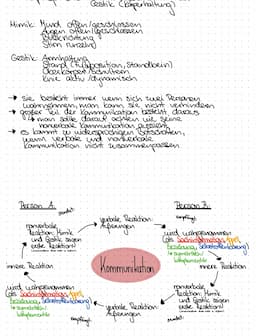 Gestik (Körperhaltung)
Mimik: Mund offen/geschlossen
Augen offen/geschlossen
Blickrichtung
Stirn runzeln
Gestik: Armhaltung
Stand (Fußposition, Standbein)
Oberkörper
Knie aktiv/dynamisch
→ sie besteht immer wenn sich zwei Personen
wahrnehmen, man kann sie nicht verhindern
→ großer Teil der Kommunikation besteht daraus
→ man sollte darauf achten wie seine
nonverbale Kommunikation aussieht
→ es kommt zu widersprüchigen Botschaften,
wenn verbale und nonverbale
Kommunikation nicht zusammenpassen
Person A:
Person B:
sendet
verbale Reaktion
Äußerungen
empfängt
nonverbale
Reaktion Mimik
und Gestik zeigen
wird wahrgenommen
(als Sachinhalt, Appell,
Beziehung, Selbstoffenbarung)
innere Reaktion
Kommunikation
innere Reaktion
wird wahrgenommen
(als Sachinhalt, Appell,
Beziehung, Selbstoffenbarung)
nonverbale
Reaktion Mimik
und Gestik zeigen
verbale Reaktion
Äußerungen
empfängt
sendet